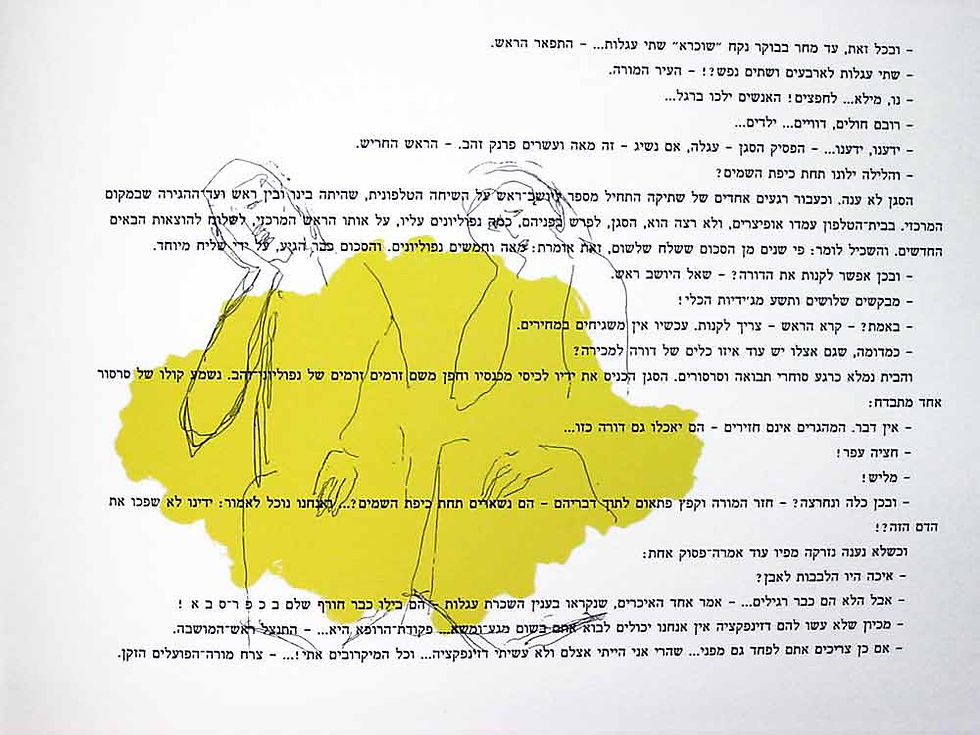 – ובכל זאת, עד מחר בבוקר נקח ״שוכרא״ שתי עגלות... – התפאר הראש.
– שתי עגלות לארבעים ושתים נפש?! – העיר המורה.
– נו, מילא... לחפצים! האנשים ילכו ברגל...
– רובם חולים, דוויים... ילדים...
– ידענו, ידענו... – הפסיק הסגן – עגלה, אם נשיג – זה מאה ועשרים פרנק זהב. – הראש החריש.
– והלילה ילונו תחת כיפת השמים?
הסגן לא ענה. וכעבור רגעים אחדים של שתיקה התחיל מספר ליושב־ראש על השיחה הטלפונית, שהיתה בינו ובין ראש ועד־ההגירה שבמקום
המרכזי. בבית־הטלפון עמדו אופיצרים, ולא רצה הוא, הסגן, לפרש בפניהם, כמה נפוליונים עליו, על אותו הראש המרכזי, לשלוח להוצאות הבאים
החדשים. והשכיל לומר: פי שנים מן הסכום ששלח שלשום, זאת אומרת: מאה וחמשים נפוליונים. והסכום כבר הגיע, על ידי שליח מיוחד.
– ובכן אפשר לקנות את הדורה? – שאל היושב ראש.
– מבקשים שלושים ותשע מג׳ידיות הכלי!
– באמת? – קרא הראש – צריך לקנות. עכשיו אין משגיחים במחירים.
– כמדומה, שגם אצלו יש עוד איזו כלים של דורה למכירה?
והבית נמלא כרגע סוחרי תבואה וסרסורים. הסגן הכניס את ידיו לכיסי מכנסיו וחפן משם זרמים זרמים של נפוליוני־זהב. נשמע קולו של סרסור
אחד מתבדח:
– אין דבר. המהגרים אינם חזירים – הם יאכלו גם דורה כזו...
– חציה עפר!
– מליש!
– ובכן כלה ונחרצה? – חזר המורה וקפץ פתאום לתוך דבריהם – הם נשארים תחת כיפת השמים?... ואנחנו נוכל לאמור: ידינו לא שפכו את
הדם הזה?!
וכשלא נענה נזרקה מפיו עוד אמרה־פסוק אחת:
– איכה היו הלבבות לאבן?
– אבל הלא הם כבר רגילים... – אמר אחד האיכרים, שנקראו בענין השכרת עגלות – הם בילו כבר חורף שלם ב כ פ ר ־ ס ב א !
– מכיון שלא עשו להם דזינפקציה אין אנחנו יכולים לבוא אתם בשום מגע־ומשא... פקודת־הרופא היא... – התנצל ראש־המושבה.
– אם כן צריכים אתם לפחד גם מפני... שהרי אני הייתי אצלם ולא עשיתי דזינפקציה... וכל המיקרובים אתי!... – צרח מורה־הפועלים הזקן.